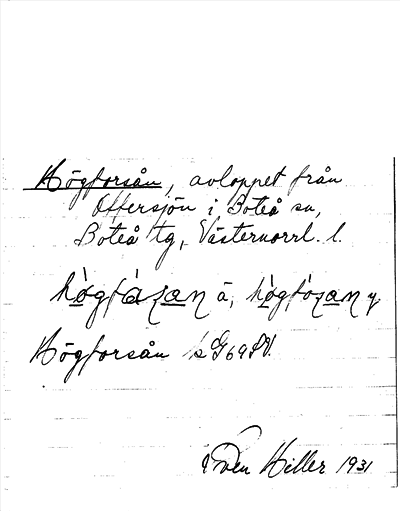 Högforsån, avloppet från
Offersjön i Boteå sn,
Boteå tg, Västernorrl. l.
hògfàzan ä, hògfòzan y
Högforsån G69SV.
Sven Hiller 1931